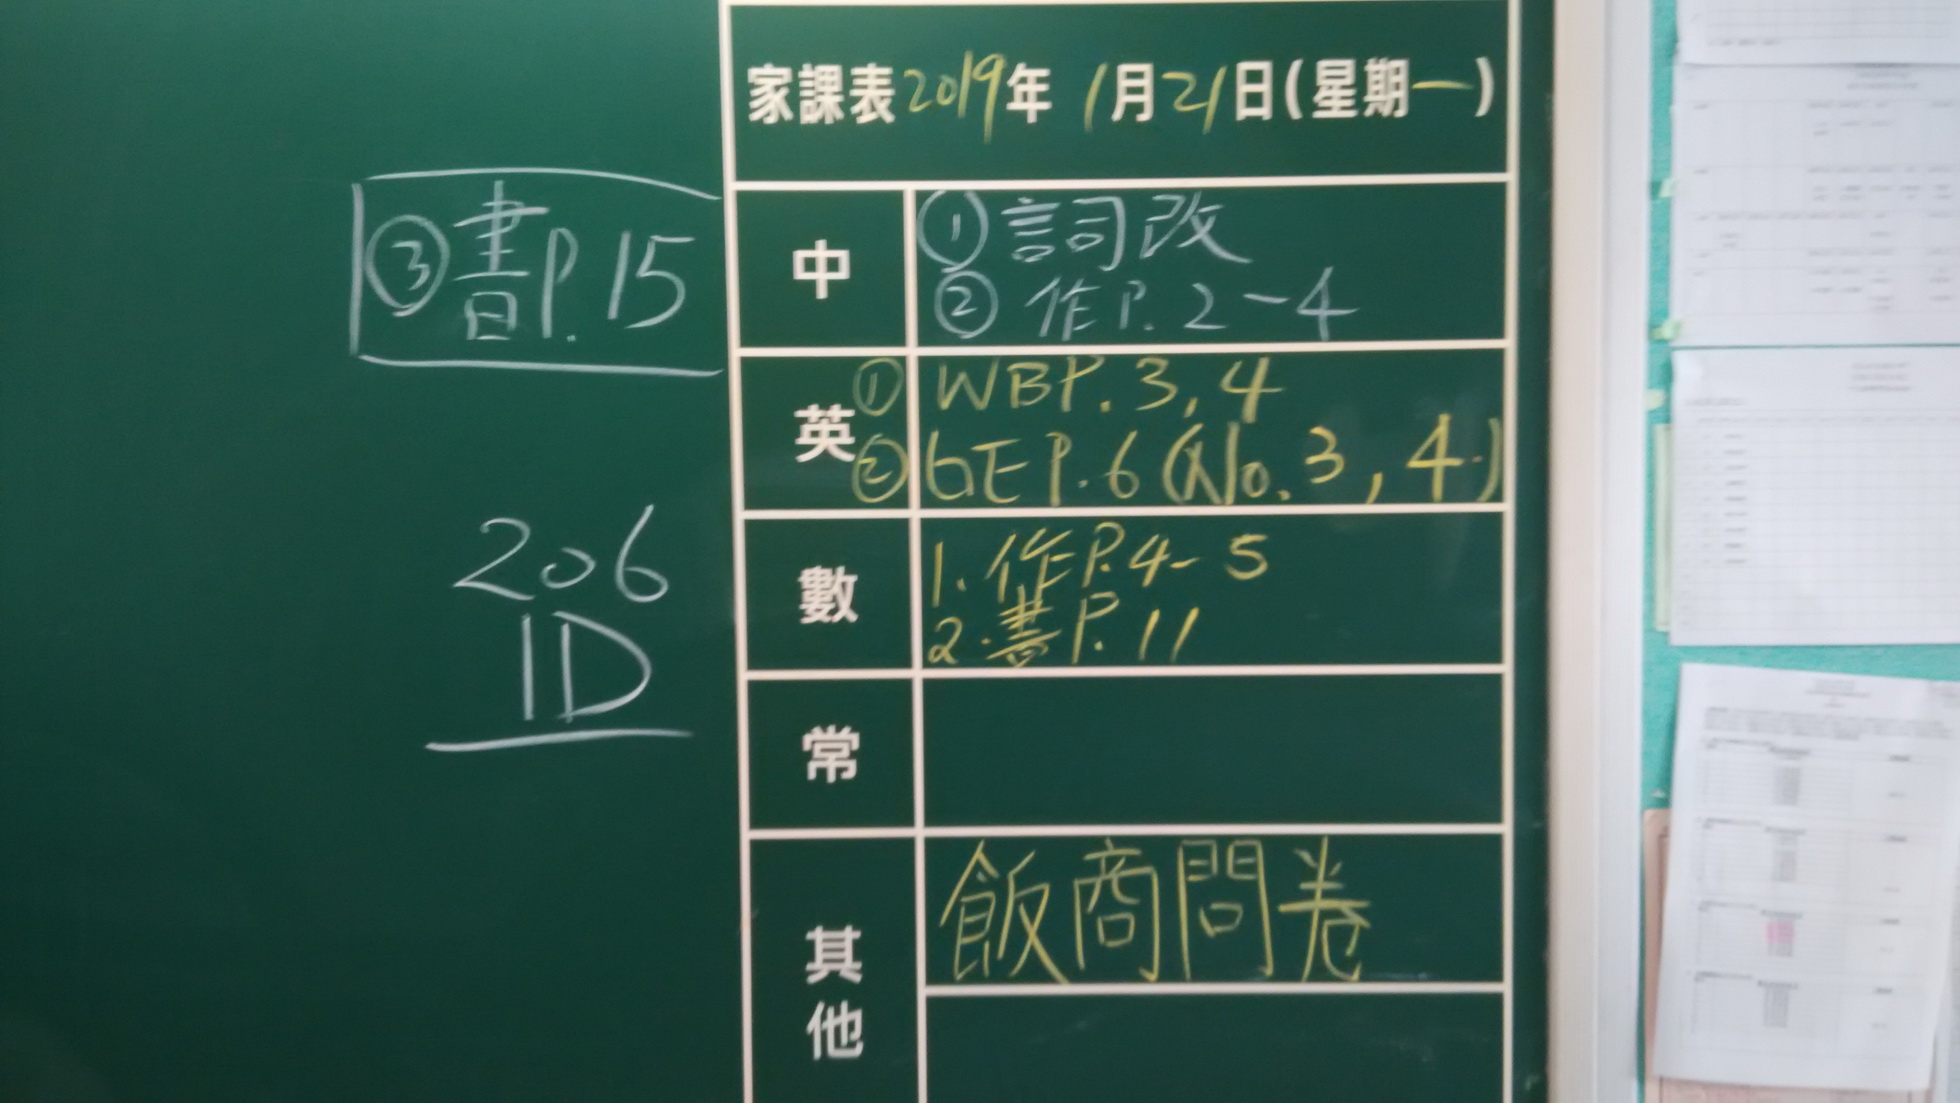 家課表2019年 1月21日(星期一)
中
①詞改
②作P.2-4
③書P.15
英
①WBP.3,4
②GE P.6 (No.3,4)
數
1.作P.4-5
2.書P.11
206
1D
常
其他
飯商問卷